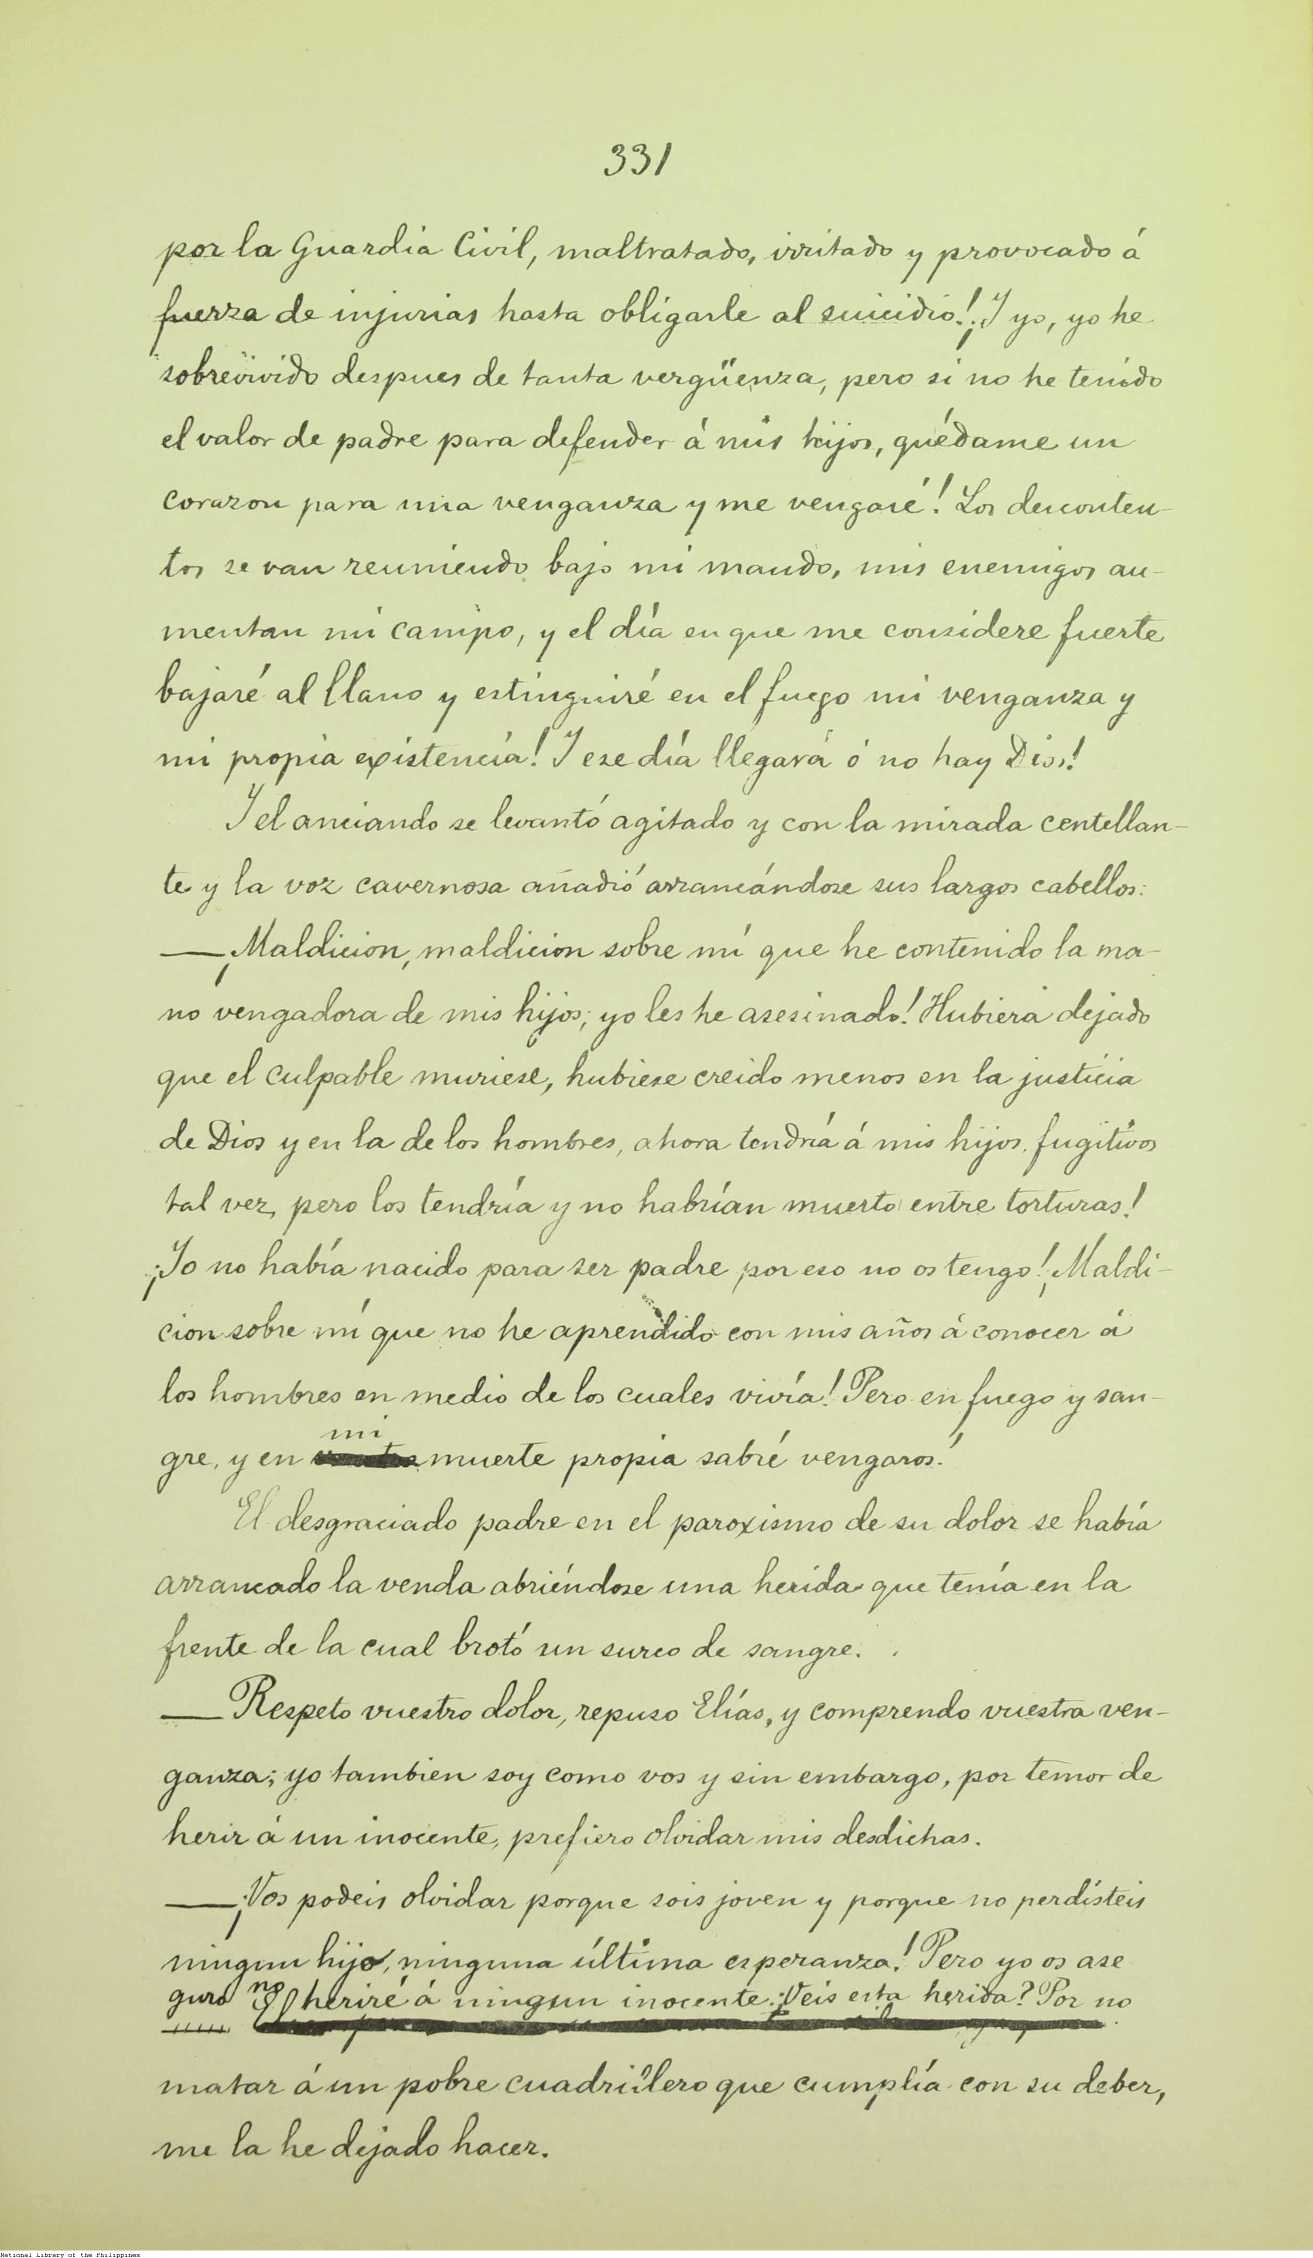 331
por la Guardia Civil, maltratado, irritado y provocado á
fuerza de injurias hasta obligarle al suicidio! ¡Y yo, yo he
sobrevivido despues de tanta vergüenza, pero si no he tenido
el valor de padre para defender á mis hijos, quédame un
corazon para una venganza y me vengaré! Los desconten-
tos se van reuniendo bajo mi mando, mis enemigos au-
mentan mi campo, y el día en que me considere fuerte
bajaré al llano y estinguiré en el fuego mi venganza y
mi propia existencia! Y ese día llegará ó no hay Dios!
Y el anciando se levantó agitado y con la mirada centellan-
te y la voz cavernosa añadió arrancándose sus largos cabellos:
—¡Maldicion, maldicion sobre mí que he contenido la ma-
no vengadora de mis hijos; yo les he asesinado! Hubiera dejado
que el culpable muriese, hubiese creido menos en la justicia
de Dios y en la de los hombres, ahora tendría á mis hijos, fugitivos
tal vez, pero los tendría y no habrían muerto entre torturas!
¡Yo no había nacido para ser padre, por eso no os tengo! ¡Maldi-
cion sobre mí que no he aprendido con mis años á conocer á
los hombres en medio de los cuales vivía! Pero en fuego y san-
gre, y en mi muerte propia sabré vengaros!
El desgraciado padre en el paroxismo de su dolor se había
arrancado la venda abriéndose una herida que tenía en la
frente de la cual brotó un surco de sangre.
—Respeto vuestro dolor, repuso Elías, y comprendo vuestra ven-
ganza; yo tambien soy como vos y sin embargo, por temor de
herir á un inocente, prefiero olvidar mis desdichas.
—¡Vos podeis olvidar porque sois joven y porque no perdísteis
ningun hijo, ninguna última esperanza! Pero yo os ase
guro no heriré á ningun inocente. ¿Veis esta herida? Por no
matar á un pobre cuadrillero que cumplía con su deber,
me la he dejado hacer.
National Library of the Philippines